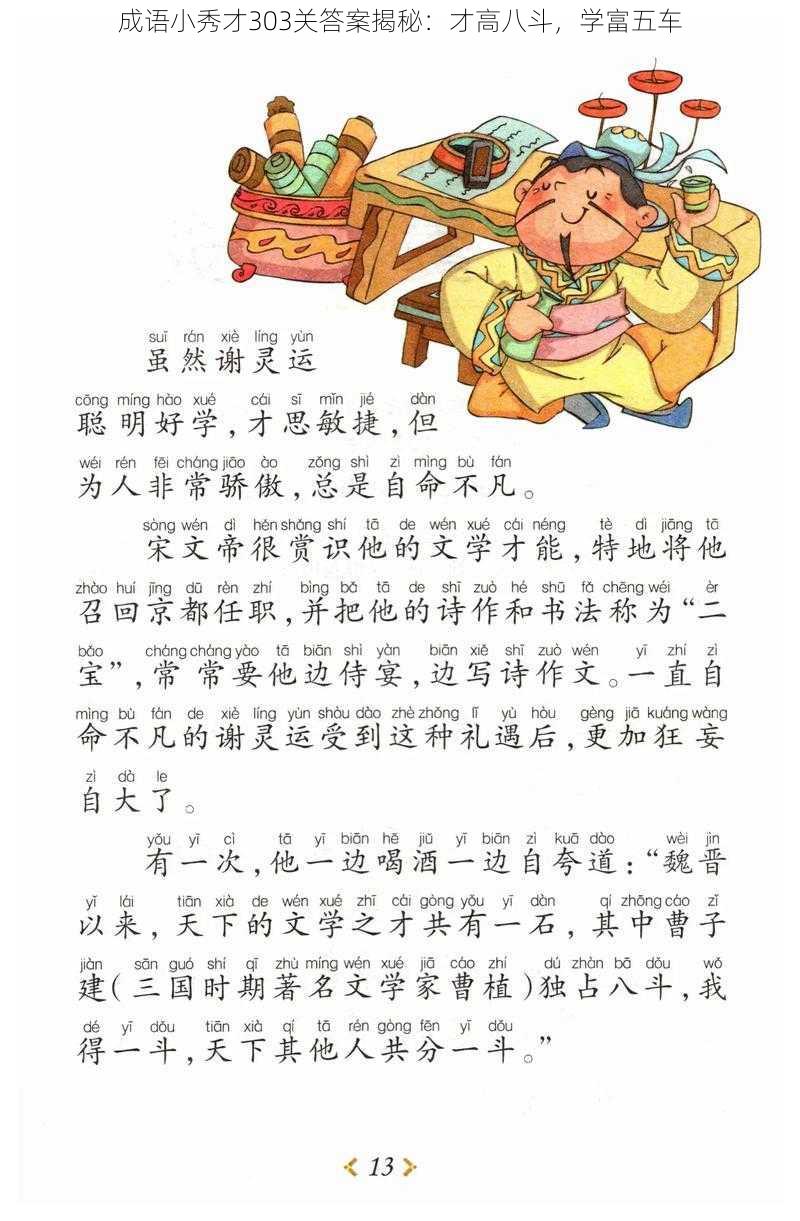 成语小秀才303关答案揭秘：才高八斗，学富五车
suī rán xiè líng yùn
虽然谢灵运
cōng míng hào xué cái sī mǐn jié dàn
聪明好学，才思敏捷，但
wéi rén fēi cháng jiāo ào zǒng shì zì mìng bù fán
为人非常骄傲，总是自命不凡。
sòng wén dì hěn shǎng shí tā de wén xué cái néng tè dì jiāng tā
宋文帝很赏识他的文学才能，特地将他
zhào huí jīng dū rèn zhí bìng bǎ tā de shī zuò hé shū fǎ chēng wéi èr
召回京都任职，并把他的诗作和书法称为“二
bǎo cháng cháng yào tā biān shì yàn biān xiě shī zuò wén yī zhí zì
宝”，常常要他边侍宴，边写诗作文。一直自
mìng bù fán de xiè líng yùn shòu dào zhè zhǒng lǐ yù hòu gèng jiā kuáng wàng
命不凡的谢灵运受到这种礼遇后，更加狂妄
zì dà le
自大了。
yǒu yī cì tā yī biān hē jiǔ yī biān zì kuā dào wèi jìn
有一次，他一边喝酒一边自夸道：“魏晋
yǐ lái tiān xià de wén xué zhī cái gòng yǒu yī dàn qí zhōng cáo zǐ
以来，天下的文学之才共有一石，其中曹子
jiàn sān guó shí qī zhù míng wén xué jiā cáo zhí dú zhàn bā dǒu wǒ
建(三国时期著名文学家曹植)独占八斗，我
dé yī dǒu tiān xià qí tā rén gòng fēn yī dǒu
得一斗，天下其他人共分一斗。”
13